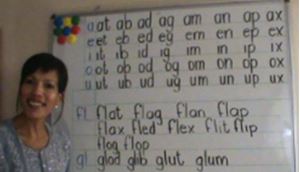 a at ab ad ag am an ap ax
e et eb ed eg em en ep ex
i it ib id ig im in ip ix
o ot ob od og om on op ox
u ut ub ud ug um un up ux
fl flat flag flan flap
flax fled flex flit flip
flog flop
gl glad glib glut glum